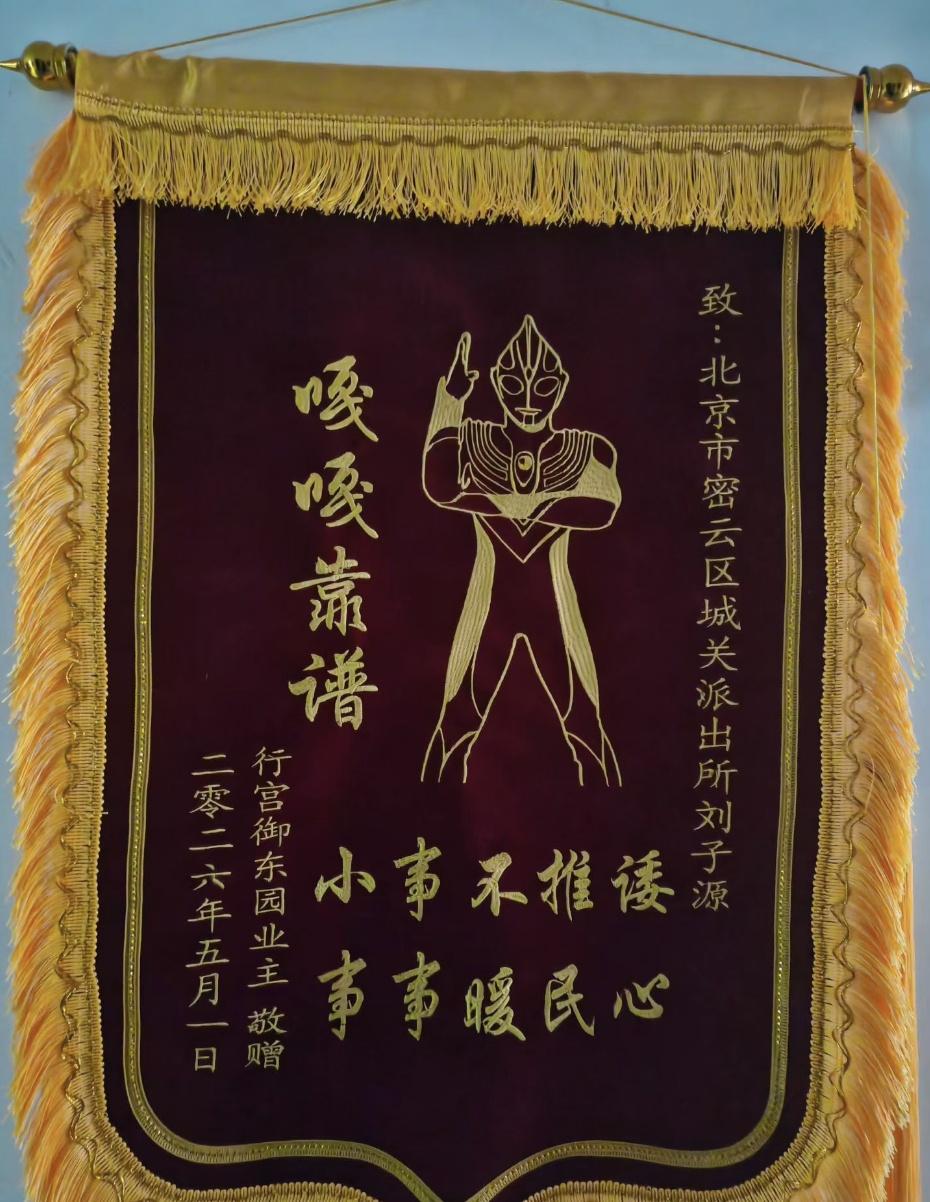 致：北京市密云区城关派出所刘子源
嘎嘎靠谱
小事不推诿
事事暖民心
行宫御东园业主 敬赠
二零二六年五月一日